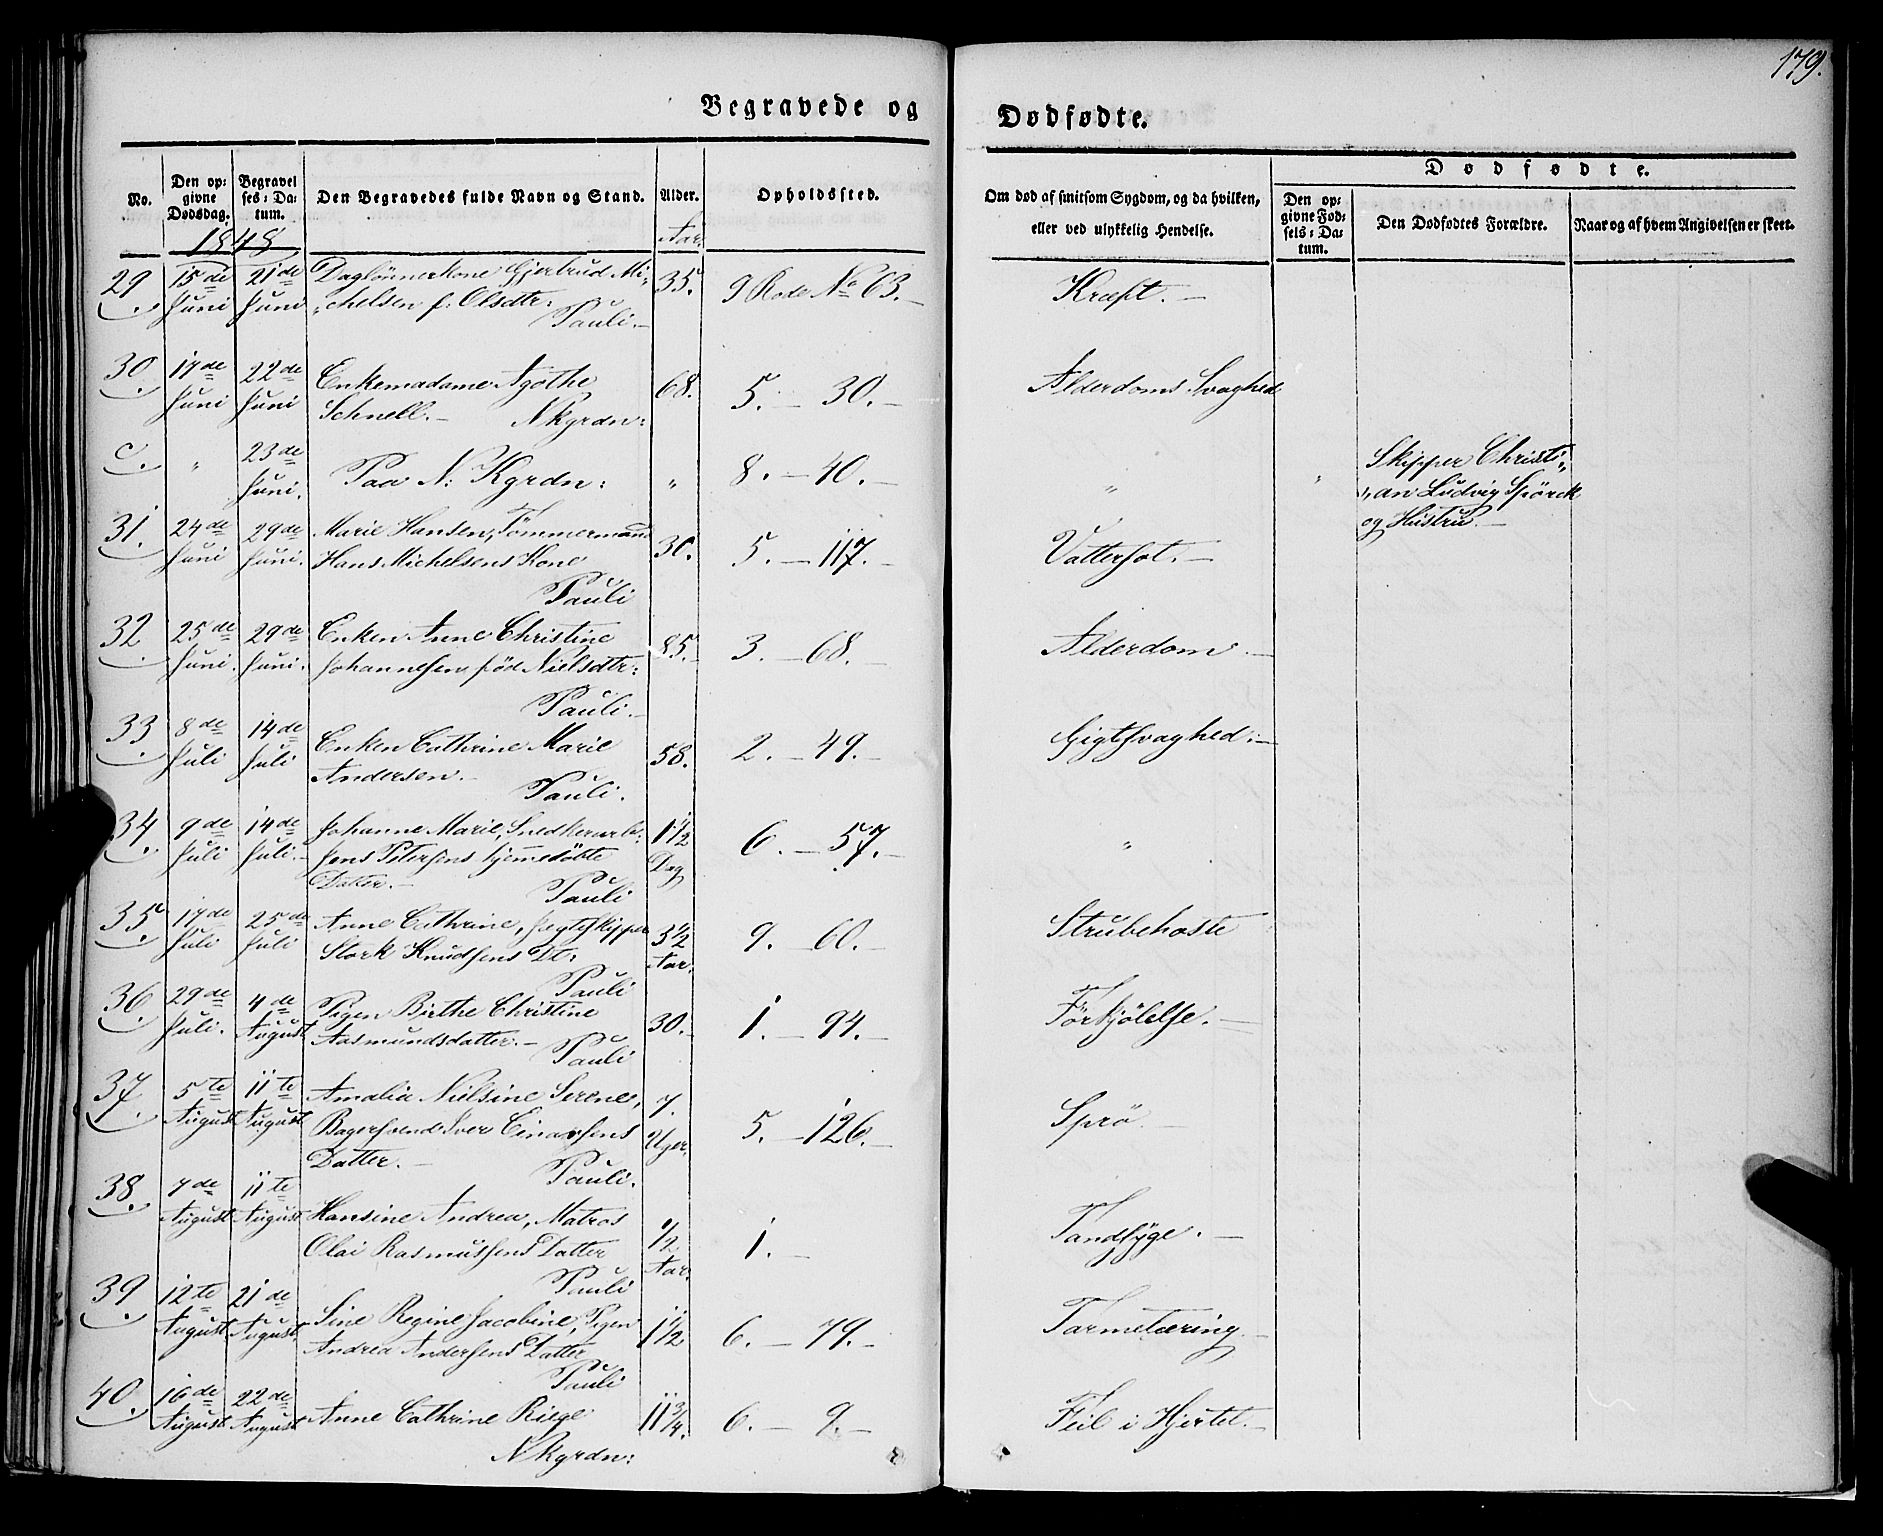 179.
Begravede og Dødfødte.
No.
Den opgivne Dødsdag.
Begravelses-Datum.
Den Begravedes fulde Navn og Stand.
Alder.
Opholdssted.
Om død af smitsom Sygdom, og da hvilken, eller ved ulykkelig Hendelse.
Dødfødte.
Den opgivne Fødsels-Datum.
Den Dødfødtes Forældre.
Naar og af hvem Angivelsen er skeet.
1848
Aar.
29. 15de Juni 21de Juni Daglönnerkone Gjertrud Mi-
chelsen f. Olsdtr: 35. 9 Rode No 63. Kræft.
Pauli.
30. 17de Juni 22de Juni Enkemadame Agothe
Schnell. N Kgrdn: 68. 5. — 30. Alderdoms Svaghed
c. " 23de Juni. Paa N: Kgrdn: " 8. — 40. " " Skipper Christi-
an Ludvig Spörck
og Hustru.
31. 24de Juni 29de Juni. Marie Hansen, Tömmermand
Hans Michelsens Kone 30. 5. — 117. Vattersot.
Pauli
32. 25de Juni. 29de Juni. Enken Anne Christine
Johannesen föd Nielsdtr: 85. 3. — 68. Alderdom.
Pauli.
33. 8de Juli 14de Juli Enken Cathrine Marie
Andersen. 58. 2. — 49. Gigtsvaghed.
Pauli.
34. 9de Juli 14de Juli. Johanne Marie, Snedkerarb:
Jens Petersens hjemedöbte
Datter. 1 1/2 Dag 6. — 57. "
Pauli
35. 17de Juli 25de Juli Anne Cathrine, Jægtskipper
Stork Knudsens Dt: 3 1/2 Aar. 9. — 60. Strubehoste
Pauli
36. 29de Juli. 4de August Pigen Birthe Christine
Aasmundsdatter. 30. 1. — 94. Forkjölelse.
Pauli
37. 5te August 11te August Amalia Nielsine Serene,
Bagersvend Iver Einarsens
Datter. 7. Uger. 5. — 126. Sprö
Pauli.
38. 7de August 11te August Hansine Andrea, Matros
Olai Rasmussens Datter 1/2 Aar. 1. — Tandsyge.
Pauli
39. 12te August 21de August. Sine Regine Jacobine, Pigen
Andrea Andersens Datter 1 1/2 6. — 79. Tarmetæring
Pauli
40. 16de August 22de August Anne Cathrine Riege 11 3/4. 6. — 9. Feil i Hjertet.
N Kgrdn: